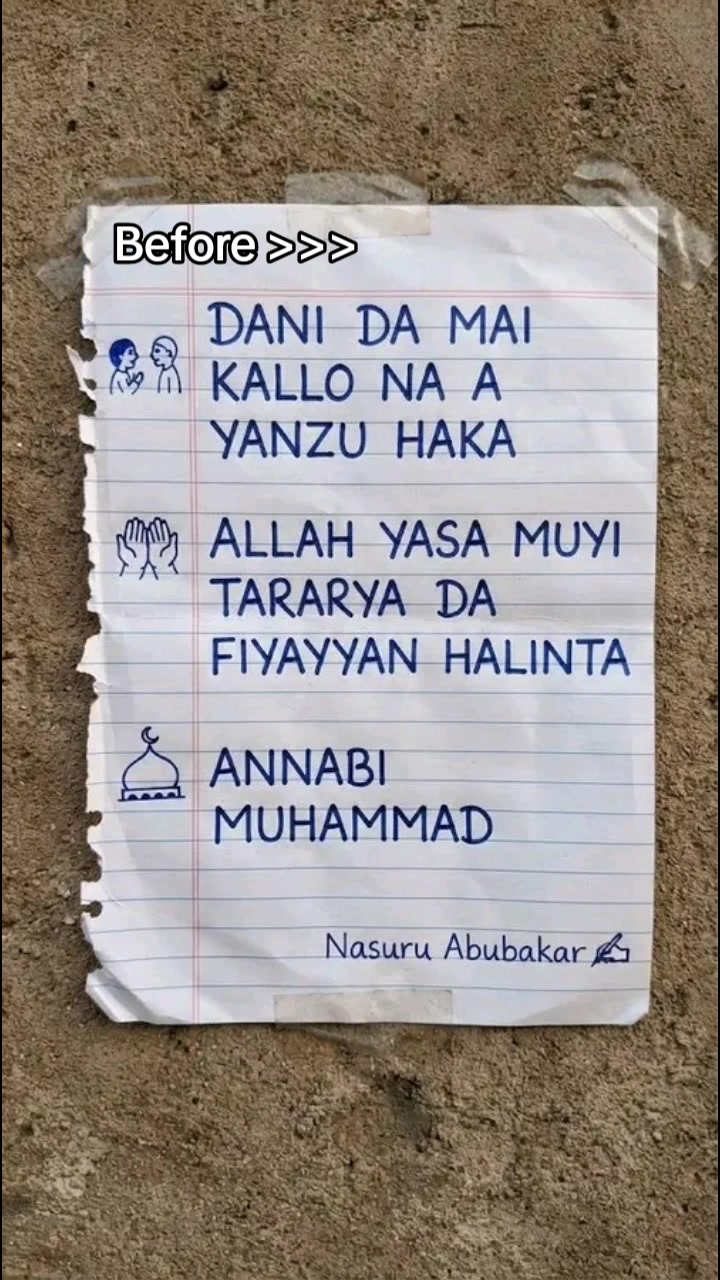 Before >>>
DANI DA MAI
KALLO NA A
YANZU HAKA
ALLAH YASA MUYI
TARARYA DA
FIYAYYAN HALINTA
ANNABI
MUHAMMAD
Nasuru Abubakar ✍